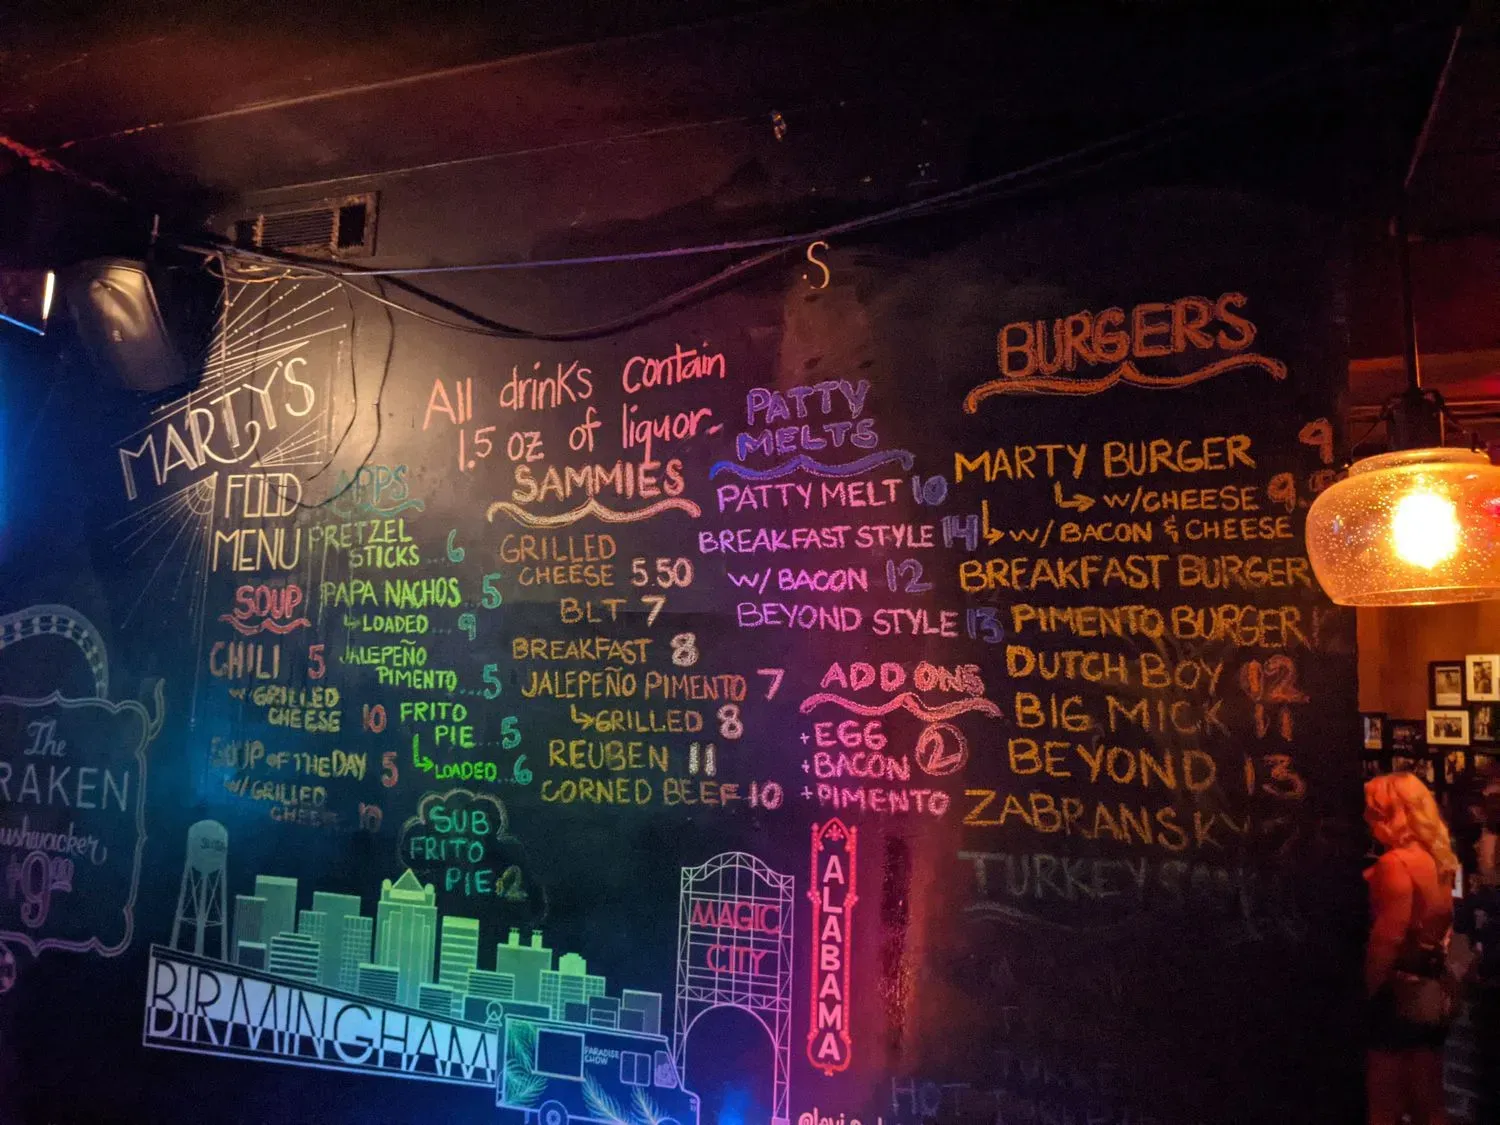 S
MARTY'S
FOOD
MENU
SOUP
CHILI 5
W/GRILLED
CHEESE 10
SOUP OF THE DAY 5
W/GRILLED
CHEESE 10
The
RAKEN
ushwacker
$9.00
All drinks contain
1.5 oz of liquor.
APPS
PRETZEL
STICKS...6
PAPA NACHOS 5
LOADED...9
JALEPEÑO
PIMENTO...5
FRITO
PIE...5
LOADED...6
SUB
FRITO
PIE 2
SAMMIES
GRILLED
CHEESE 5.50
BLT 7
BREAKFAST 8
JALEPEÑO PIMENTO 7
GRILLED 8
REUBEN 11
CORNED BEEF 10
PATTY
MELTS
PATTY MELT 10
BREAKFAST STYLE 14
W/BACON 12
BEYOND STYLE 13
ADD ONS
+EGG
+BACON 2
+PIMENTO
BURGERS
MARTY BURGER 9
W/CHEESE 9
W/BACON & CHEESE
BREAKFAST BURGER
PIMENTO BURGER
DUTCH BOY 12
BIG MICK 11
BEYOND 13
ZABRANSKY
TURKEY
BIRMINGHAM
PARADISE
CHOW
MAGIC
CITY
ALABAMA
HOT